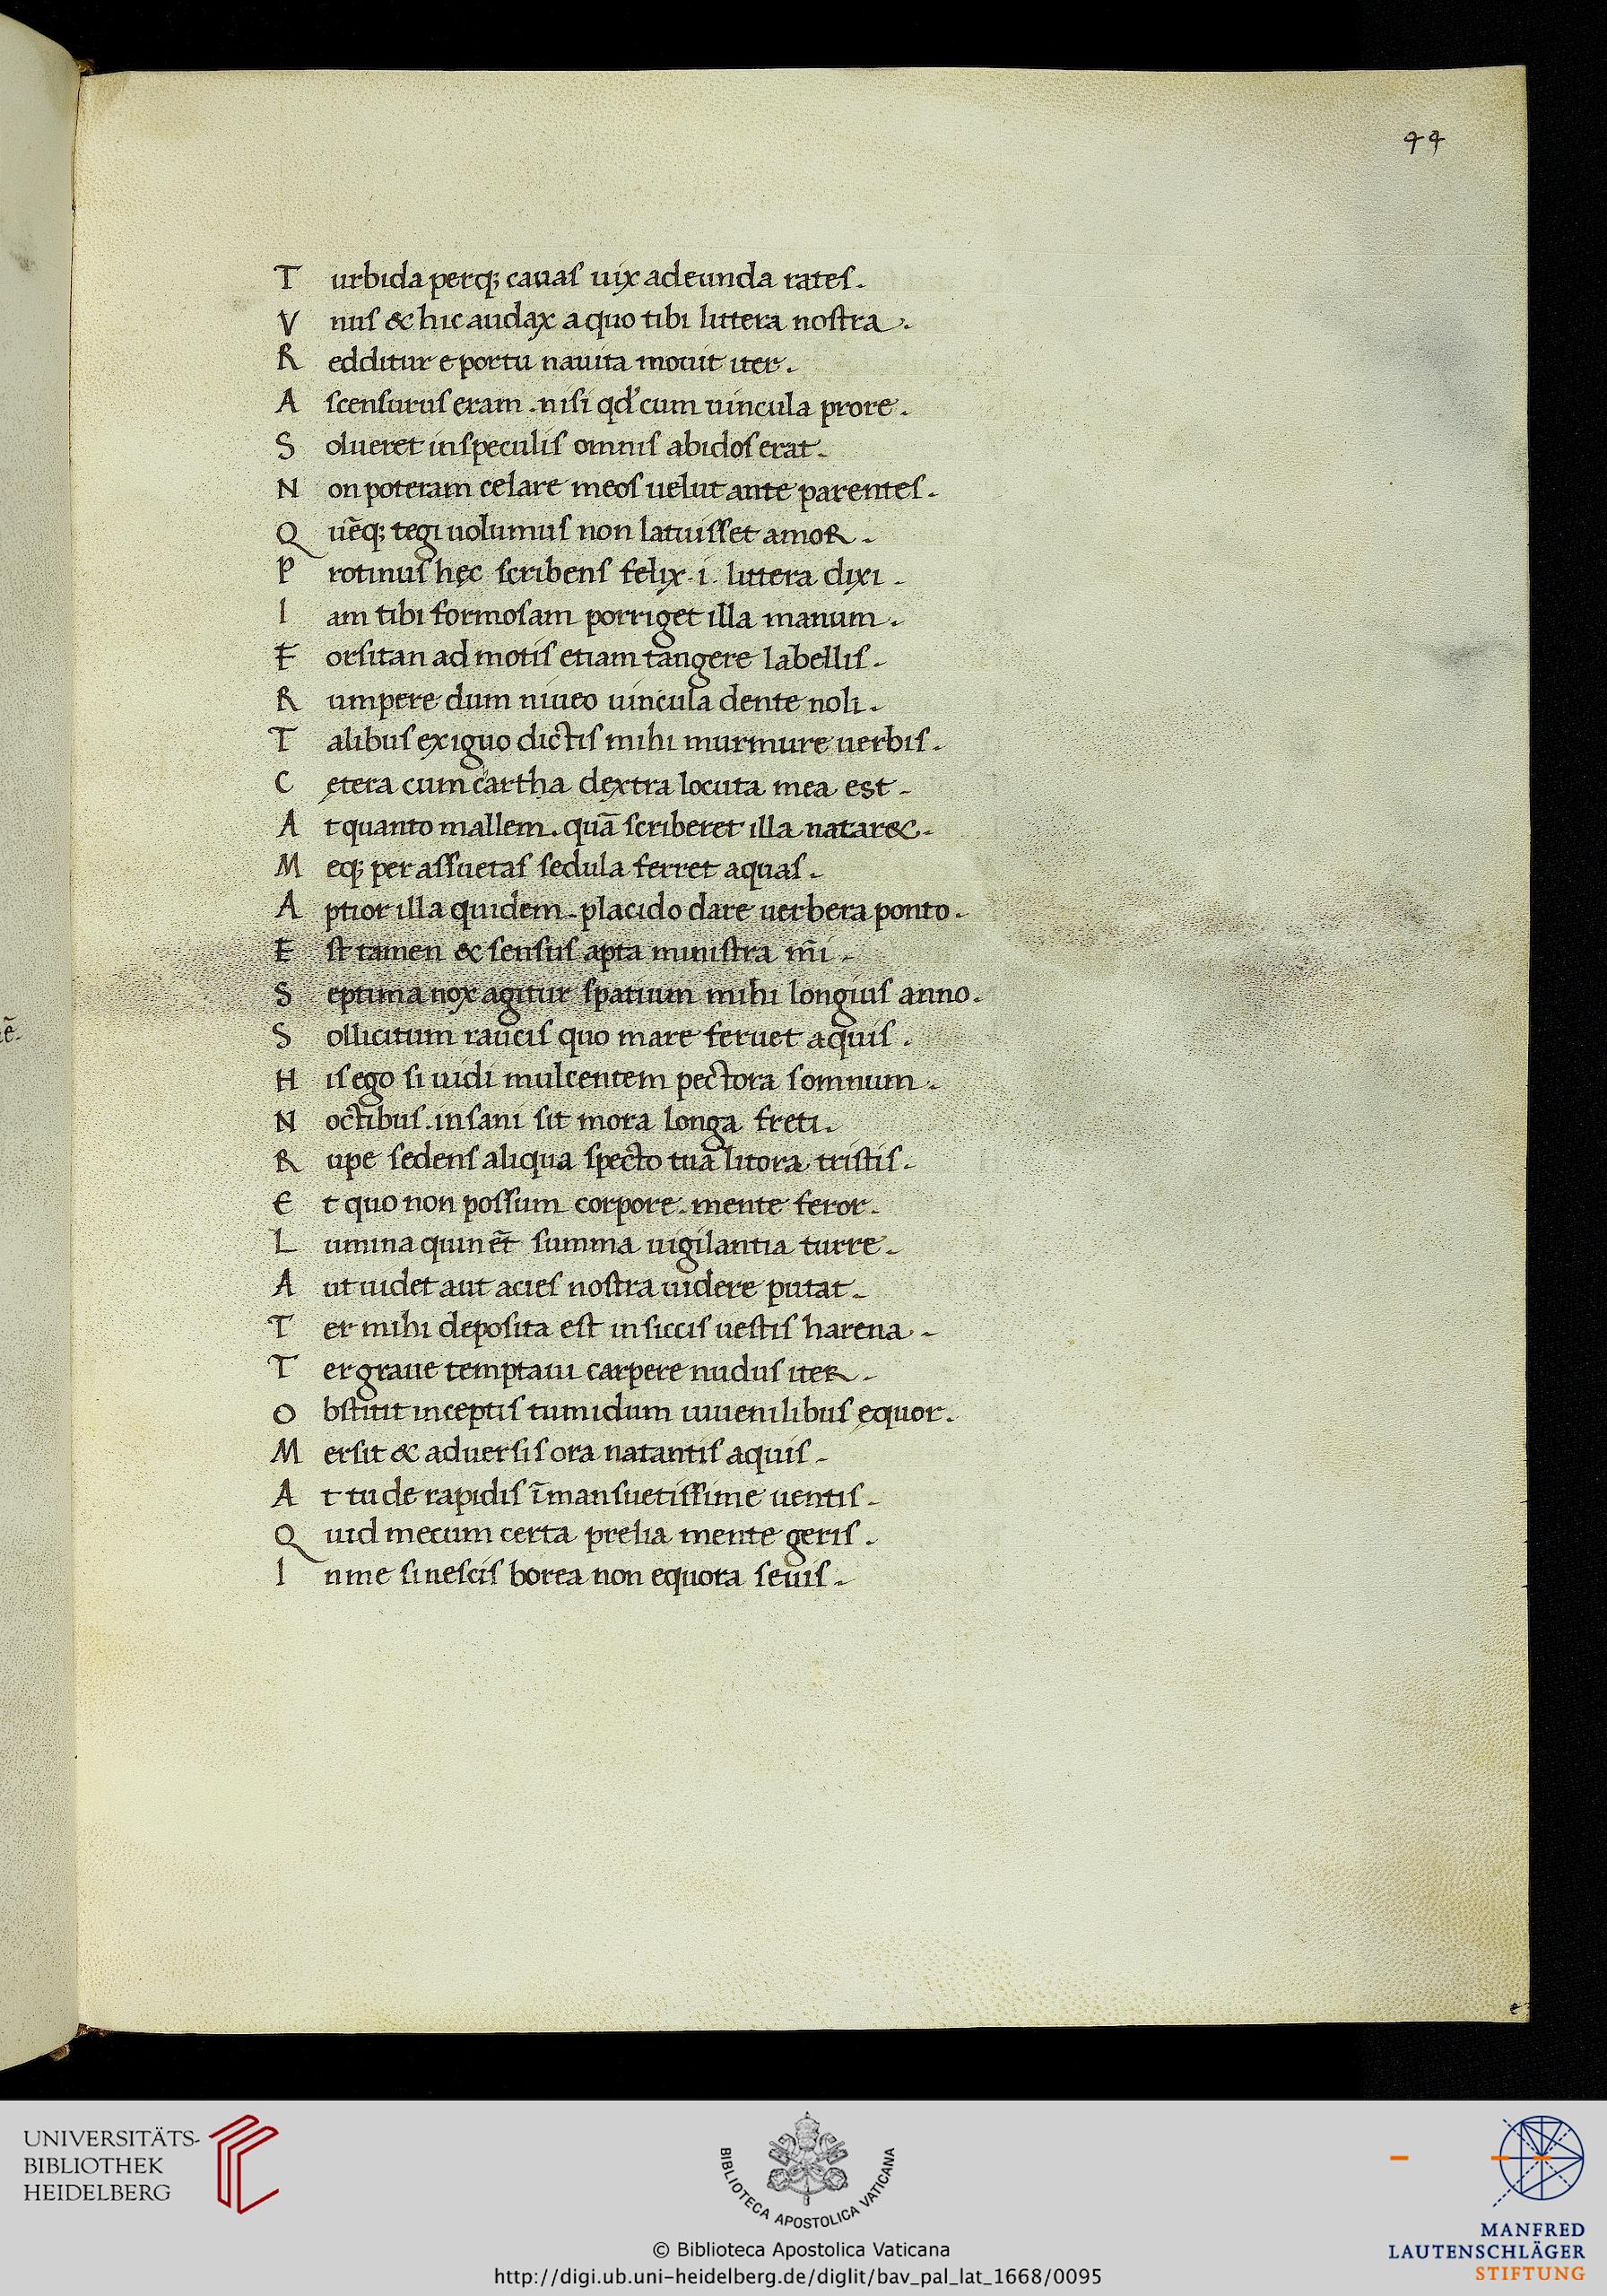 44
T urbida perq; cauas uix adeunda rates.
V nus & hic audax a quo tibi littera nostra.
R edditur e portu nauita mouit iter.
A scensurus eram. nisi qd' cum uincula prore.
S olueret in speculis omnis abidos erat.
N on poteram celare meos uelut ante parentes.
Q uēq; tegi uolumus non latuisset amoR.
P rotinus hęc scribens felix. i. littera dixi.
I am tibi formosam porriget illa manum.
F orsitan ad motis etiam tangere labellis.
R umpere dum niueo uincula dente noli.
T alibus exiguo dictis mihi murmure uerbis.
C ętera cum cartha dextra locuta mea est.
A t quanto mallem. quā scriberet illa natar&.
M eq; per assuetas sedula ferret aquas.
A ptior illa quidem. placido dare uerbera ponto.
E st tamen & sensus apta ministra m̄i.
S eptima nox agitur spatium mihi longius anno.
S ollicitum raucis quo mare feruet aquis.
H is ego si uidi mulcentem pectora somnum.
N octibus. insani sit mora longa freti.
R upe sedens aliqua specto tua litora tristis.
E t quo non possum corpore. mente feror.
L umina quin et̄ summa uigilantia turre.
A ut uidet aut acies nostra uidere putat.
T er mihi deposita est in siccis uestis harena.
T er graue temptaui carpere nudus iteR.
O bstitit inceptis tumidum iuuenilibus ęquor.
M ersit & aduersis ora natantis aquis.
A t tu de rapidis īmansuetissime uentis.
Q uid mecum certa prelia mente geris.
I n me si nescis borea non equora seuis.
UNIVERSITÄTS-
BIBLIOTHEK
HEIDELBERG
BIBLIOTECA APOSTOLICA VATICANA
© Biblioteca Apostolica Vaticana
http://digi.ub.uni-heidelberg.de/diglit/bav_pal_lat_1668/0095
MANFRED
LAUTENSCHLÄGER
STIFTUNG